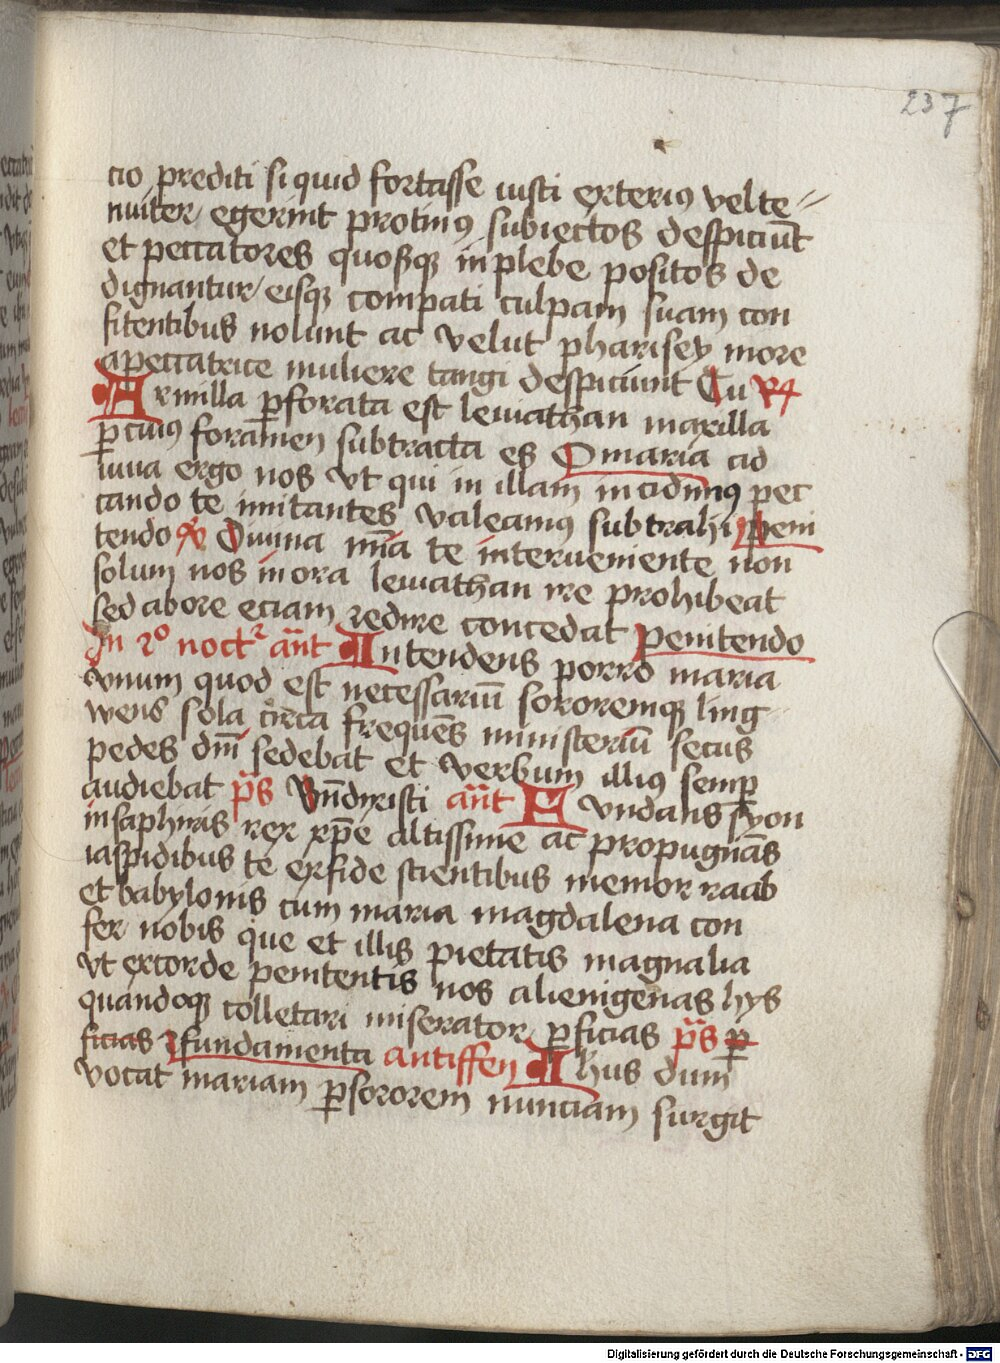 237
cio prediti si quid fortasse iusti exterius vel te
nuiter egerint protinus subiectos despiciūt
et peccatores quosque in plebe positos de
dignantur eisque compati culpam suam con
fitentibus nolunt ac velut pharisey more
a peccatrice muliere tangi despiciunt Tu R
Armilla perforata est leuiathan maxilla
per cuius foramen subtracta es O maria ad
iuua ergo nos vt qui in illam incidimus pec
cando te imitantes valeamus subtrahi peni
tendo Diuina mīa te interueniente non
solum nos in ora leuiathan ire prohibeat
sed ab ore eciam redire concedat Penitendo
In 2º noct añt Intendens porro maria
vnum quod est necessariū sororemque ling
wens sola circa frequēs ministeriū secus
pedes dnī sedebat et verbum illius semper
audiebat ps Bn̄dixisti añt Fundans syon
in saphiris rex xp̄e altissime ac propugnās
iaspidibus te ex fide scientibus memor raab
et babylonis cum maria magdalena con
fer nobis que et illis pietatis magnalia
vt ex corde penitentis nos alienigenas hys
quandoque colletari miserator perficias ps per
ficias fundamenta antiffen Ihus dum
vocat mariam per sororem nunciam surgit
Digitalisierung gefördert durch die Deutsche Forschungsgemeinschaft - DFG